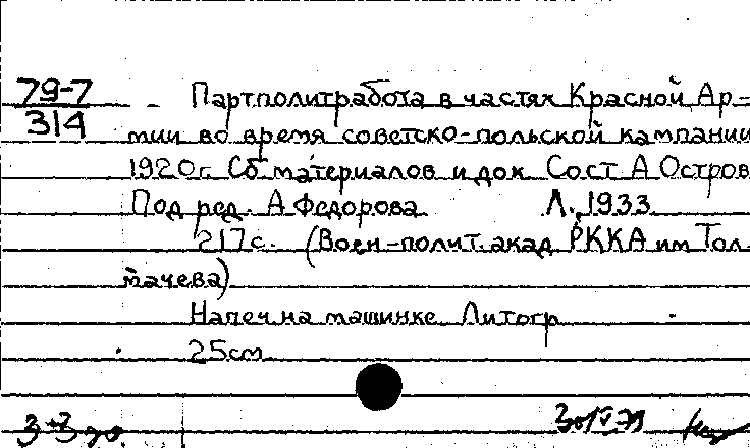 79-7
314
Партполитработа в частях Красной Ар-
мии во время советско-польской кампании
1920г. Сб материалов и док Сост А Остров
Под ред. А Федорова Л., 1933
217с. (Воен-полит. акад РККА им Тол
мачева)
Напеч на машинке Литогр
25см